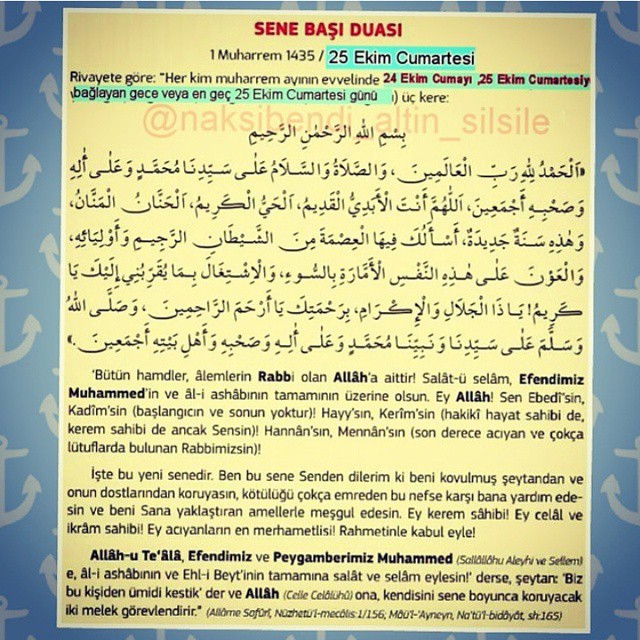 SENE BAŞI DUASI
1 Muharrem 1435 / 25 Ekim Cumartesi
Rivayete göre: "Her kim muharrem ayının evvelinde 24 Ekim Cumayı ,25 Ekim Cumartesiy
bağlayan gece veya en geç 25 Ekim Cumartesi günü ) üç kere:
@naksibendi_altin_silsile
بِسْمِ اللهِ الرَّحْمٰنِ الرَّحِيمِ
«اَلْحَمْدُ لِلهِ رَبِّ الْعَالَمِينَ، وَالصَّلَاةُ وَالسَّلَامُ عَلٰى سَيِّدِنَا مُحَمَّدٍ وَعَلٰى أٰلِهِ
وَصَحْبِهِ أَجْمَعِينَ، اَللّٰهُمَّ أَنْتَ الْأَبَدِيُّ الْقَدِيمُ، اَلْحَيُّ الْكَرِيمُ، اَلْحَنَّانُ الْمَنَّانُ،
وَهٰذِهِ سَنَةٌ جَدِيدَةٌ، أَسْأَلُكَ فِيهَا الْعِصْمَةَ مِنَ الشَّيْطَانِ الرَّجِيمِ وَأَوْلِيَائِهِ،
وَالْعَوْنَ عَلٰى هٰذِهِ النَّفْسِ الْأَمَّارَةِ بِالسُّوءِ، وَالْاِشْتِغَالَ بِمَا يُقَرِّبُنِي إِلَيْكَ يَا
كَرِيمُ! يَا ذَا الْجَلَالِ وَالْإِكْرَامِ، بِرَحْمَتِكَ يَا أَرْحَمَ الرَّاحِمِينَ، وَصَلَّى اللهُ
وَسَلَّمَ عَلٰى سَيِّدِنَا وَنَبِيِّنَا مُحَمَّدٍ وَعَلٰى أٰلِهِ وَصَحْبِهِ وَأَهْلِ بَيْتِهِ أَجْمَعِينَ.»
'Bütün hamdler, âlemlerin Rabbi olan Allâh'a aittir! Salât-ü selâm, Efendimiz
Muhammed'in ve âl-i ashâbının tamamının üzerine olsun. Ey Allâh! Sen Ebedî'sin,
Kadîm'sin (başlangıcın ve sonun yoktur)! Hayy'sın, Kerîm'sin (hakikî hayat sahibi de,
kerem sahibi de ancak Sensin)! Hannân'sın, Mennân'sın (son derece acıyan ve çokça
lütuflarda bulunan Rabbimizsin)!
İşte bu yeni senedir. Ben bu sene Senden dilerim ki beni kovulmuş şeytandan ve
onun dostlarından koruyasın, kötülüğü çokça emreden bu nefse karşı bana yardım ede-
sin ve beni Sana yaklaştıran amellerle meşgul edesin. Ey kerem sâhibi! Ey celâl ve
ikrâm sahibi! Ey acıyanların en merhametlisi! Rahmetinle kabul eyle!
Allâh-u Te'âlâ, Efendimiz ve Peygamberimiz Muhammed (Sallâllâhu Aleyhi ve Sellem)
e, âl-i ashâbının ve Ehl-i Beyt'inin tamamına salât ve selâm eylesin!' derse, şeytan: 'Biz
bu kişiden ümidi kestik' der ve Allâh (Celle Celâlühû) ona, kendisini sene boyunca koruyacak
iki melek görevlendirir." (Allâme Safûrî, Nüzhetü'l-mecâlis:1/156; Mâü'l-'Ayneyn, Na'tü'l-bidâyât, sh:165)